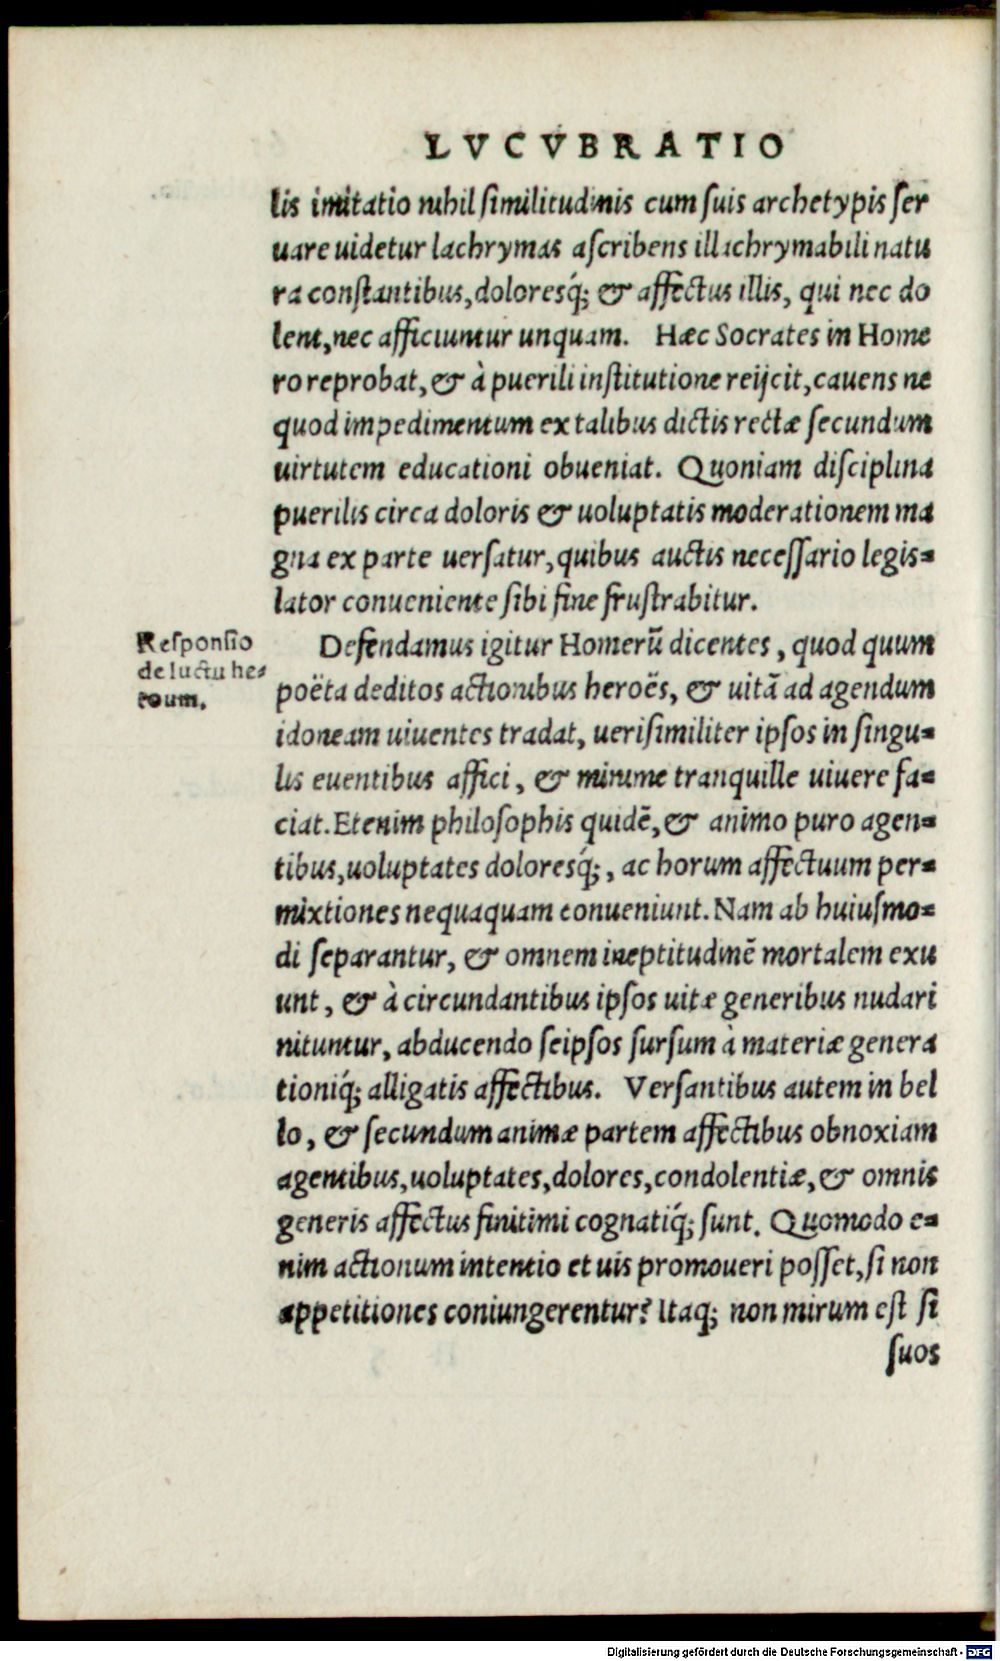 LVCVBRATIO
lis imitatio nihil ſimilitudinis cum ſuis archetypis ſer
uare uidetur lachrymas aſcribens illachrymabili natu
ra conſtantibus, doloresq́; & affectus illis, qui nec do
lent, nec afficiuntur unquam. Hæc Socrates in Home
ro reprobat, & à puerili inſtitutione reijcit, cauens ne
quod impedimentum ex talibus dictis rectæ ſecundum
uirtutem educationi obueniat. Quoniam diſciplina
puerilis circa doloris & uoluptatis moderationem ma
gna ex parte uerſatur, quibus auctis neceſſario legis-
lator conueniente ſibi fine fruſtrabitur.
Responſio
de luctu he-
roum.
Defendamus igitur Homerũ dicentes, quod quum
poëta deditos actionibus heroẽs, & uitã ad agendum
idoneam uiuentes tradat, ueriſimiliter ipſos in ſingu-
lis euentibus affici, & minime tranquille uiuere fa-
ciat. Etenim philoſophis quidẽ, & animo puro agen-
tibus, uoluptates doloresq́;, ac horum affectuum per-
mixtiones nequaquam conueniunt. Nam ab huiuſmo-
di ſeparantur, & omnem ineptitudinẽ mortalem exu
unt, & à circundantibus ipſos uitæ generibus nudari
nituntur, abducendo ſeipſos ſurſum à materiæ genera
tioniq́; alligatis affectibus. Verſantibus autem in bel
lo, & ſecundum animæ partem affectibus obnoxiam
agentibus, uoluptates, dolores, condolentiæ, & omnis
generis affectus finitimi cognatiq́; ſunt. Quomodo e-
nim actionum intentio et uis promoueri poſſet, ſi non
appetitiones coniungerentur? Itaq; non mirum eſt ſi
ſuos
Digitalisierung gefördert durch die Deutsche Forschungsgemeinschaft - DFG